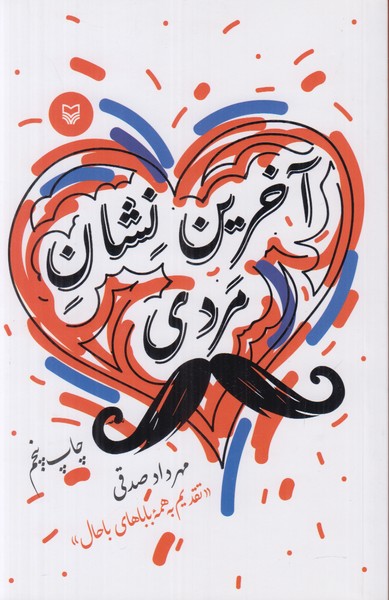 آخرین نشانِ
مَردی
چاپ پنجم
مهرداد صدقی
«تقدیم به همهٔ باباهای باحال»